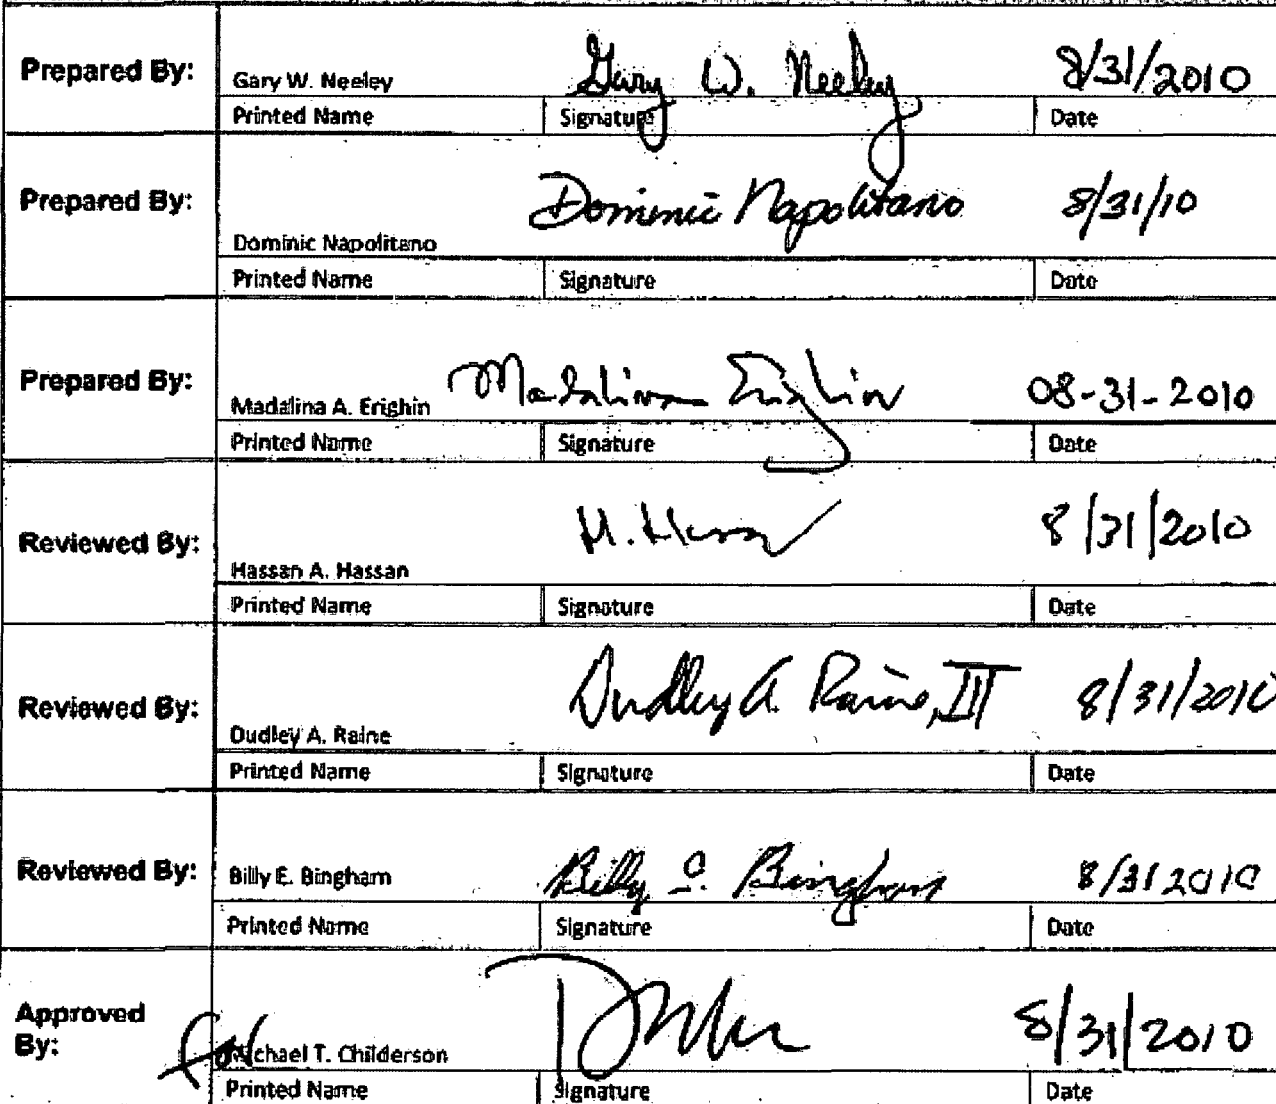 Prepared By: Gary W. Neeley Gary W. Neeley 8/31/2010
Printed Name Signature Date
Prepared By: Dominic Napolitano Dominic Napolitano 8/31/10
Printed Name Signature Date
Prepared By: Madalina A. Erighin Madalina Erighin 08-31-2010
Printed Name Signature Date
Reviewed By: Hassan A. Hassan H. Hassan 8/31/2010
Printed Name Signature Date
Reviewed By: Dudley A. Raine Dudley A. Raine, III 8/31/2010
Printed Name Signature Date
Reviewed By: Billy E. Bingham Billy E. Bingham 8/31 2010
Printed Name Signature Date
Approved
By: for Michael T. Childerson 8/31/2010
Printed Name Signature Date